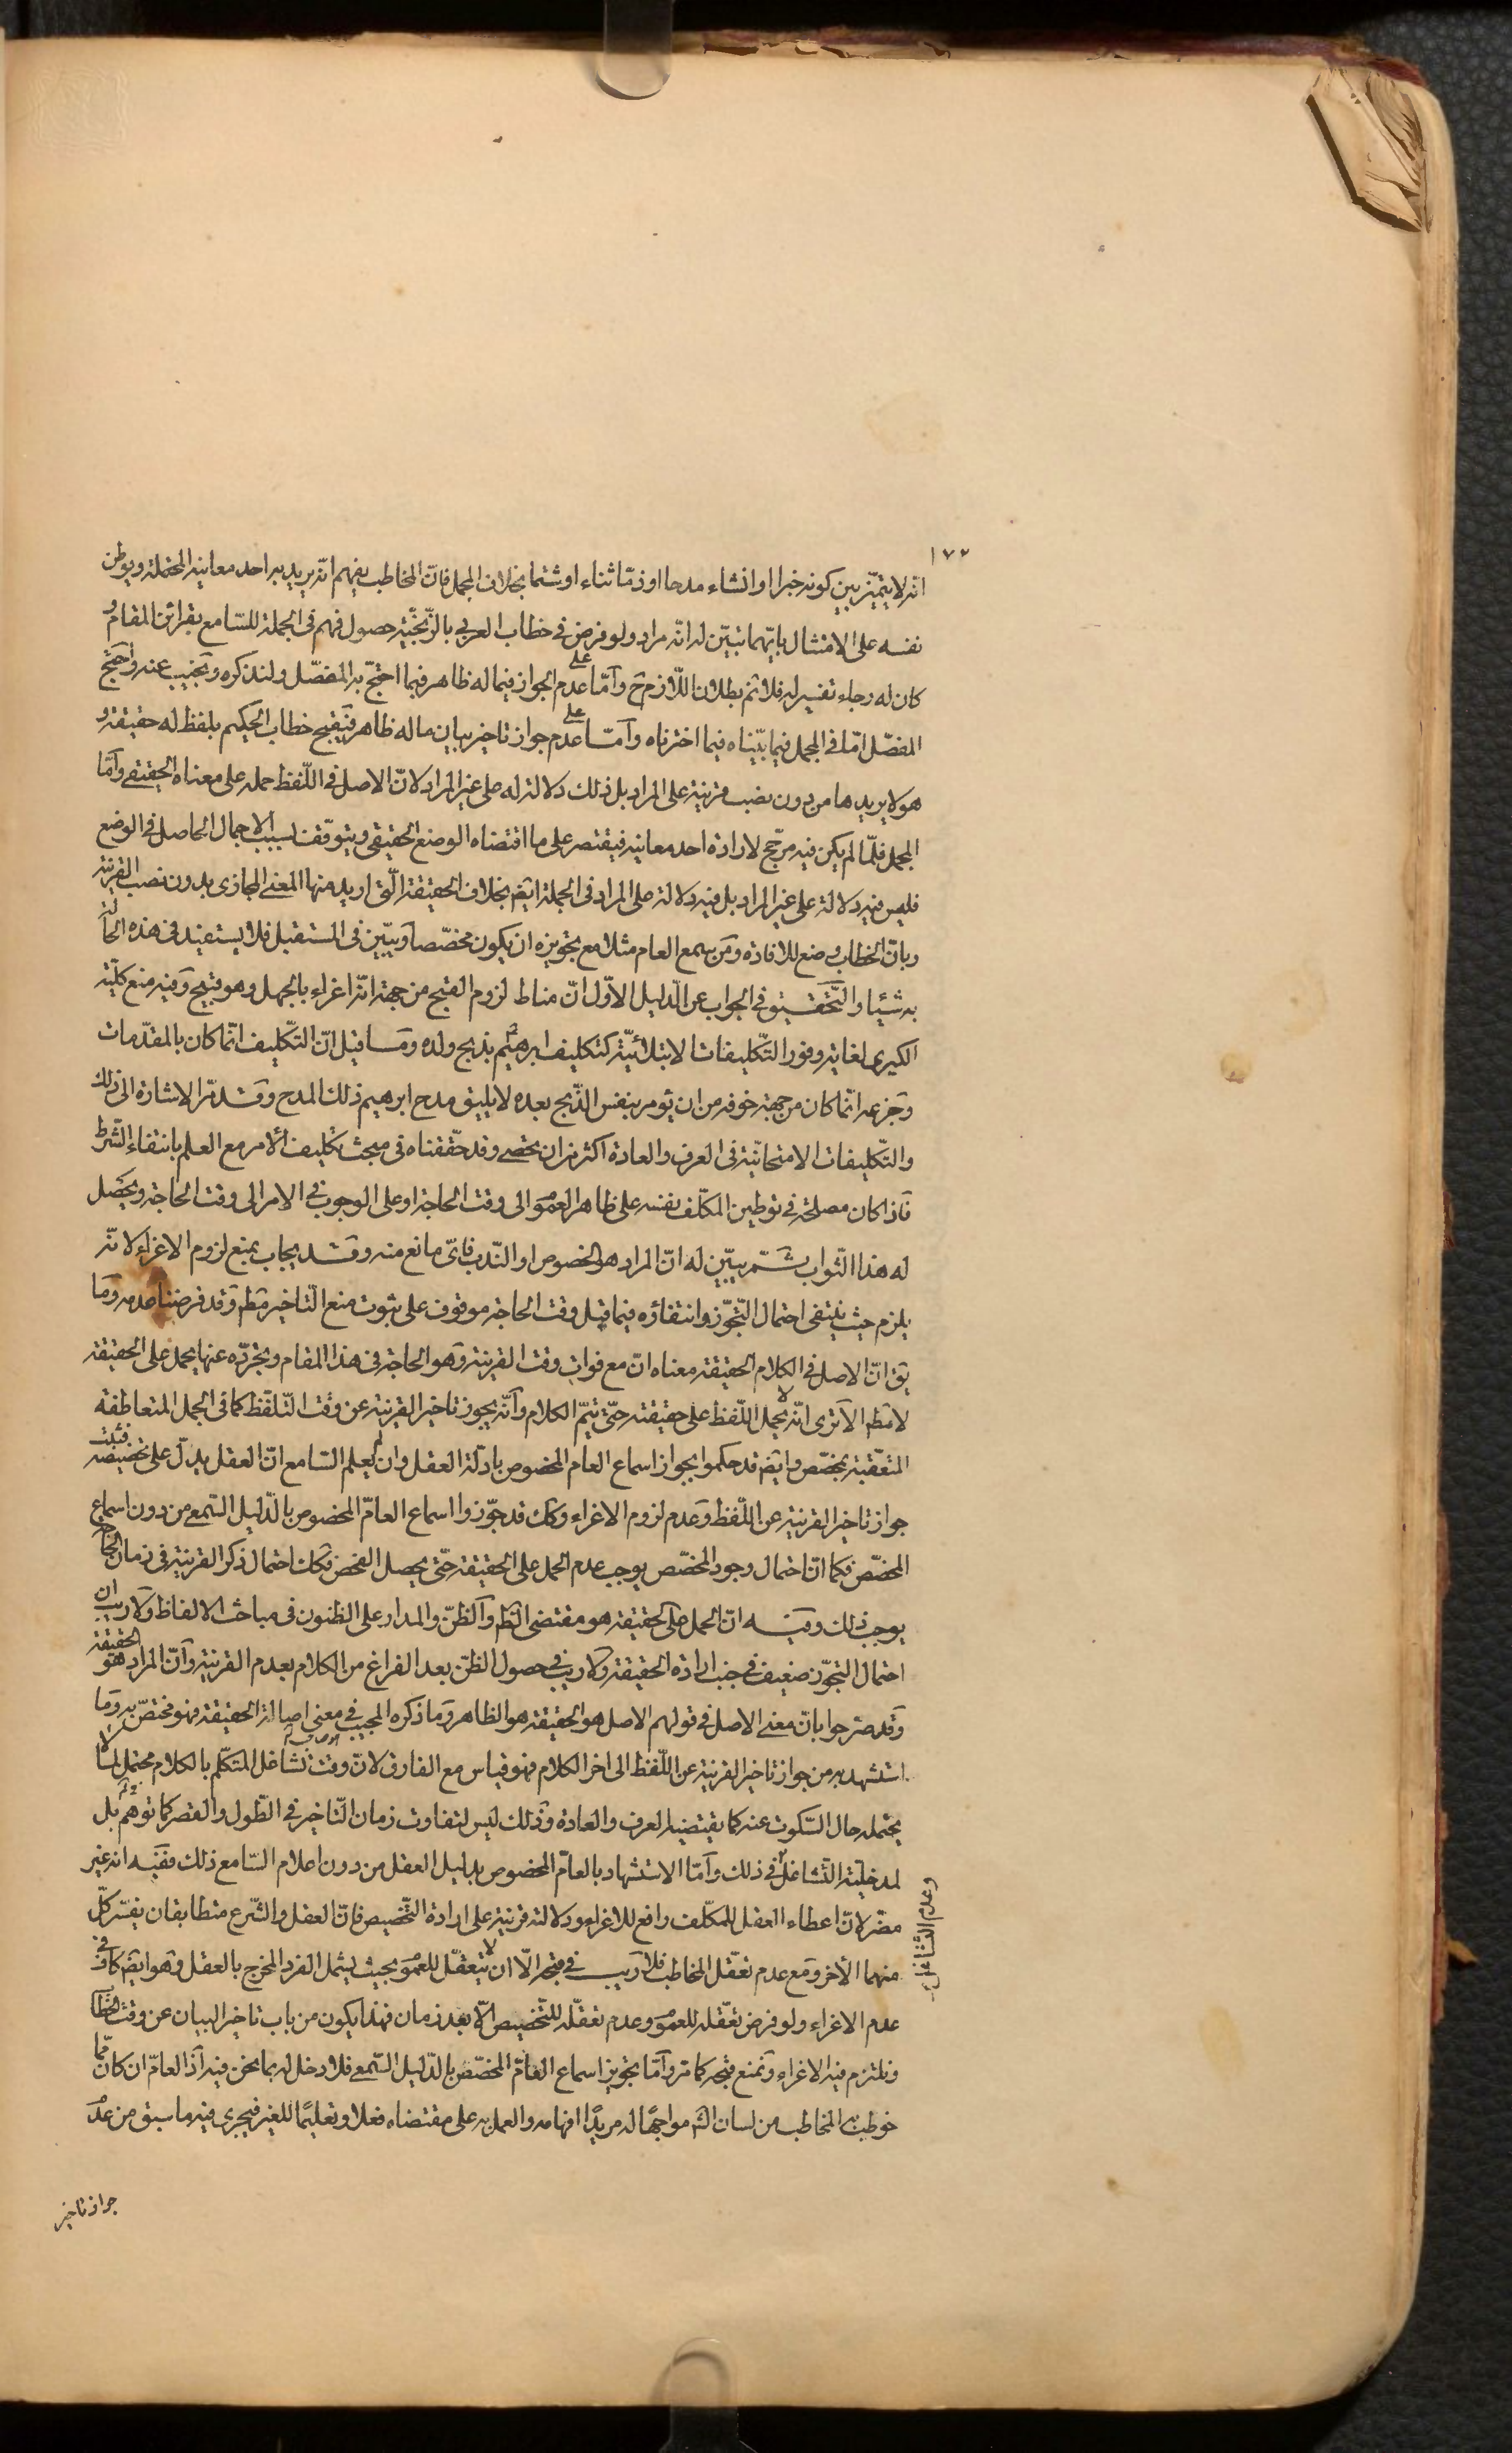 ١٧٢
انه لا يتميّز بين كونه خبرا او انشاء مدحا او ذمّا ثناء او شتما بخلاف المجمل فانّ المخاطب يفهم انّه يريد به احد معانيه المحتملة ويوطن
نفسه على الامتثال بايّهما تبيّن له انّه مراد ولو فرض في خطاب العربى بالزّنجيّة حصول فهم فى الجملة للسّامع بقرائن المقام و
كان له رجاء تفسير له فلا ثم بطلان اللّازم ح وامّا على عدم الجواز فيما له ظاهر فيما احتجّ به المفصّل ولنذكره ونجيب عنه واحتجّ
المفصّل امّا فى المجمل فيما بيّناه فيما اخترناه وامّا على عدم جواز تاخير بيان ما له ظاهر فيقبح خطاب الحكيم بلفظ له حقيقة و
هو لا يريدها من دون نصب قرينة على المراد بل ذلك دلالة له على غير المراد لانّ الاصل فى اللّفظ حمله على معناه الحقيقى وامّا
المجمل فلمّا لم يكن فيه مرجّح لارادة احد معانيه فيقتصر على ما اقتضاه الوضع الحقيقى ويتوقّف لسبب الاجمال الحاصل فى الوضع
فليس فيه دلالة على غير المراد بل فيه دلالة على المراد فى الجملة ايضا بخلاف الحقيقة الّتى اريد منها المعنى المجازى بدون نصب القرينة
وبانّ الخطاب وضع للافادة ومن يسمع العام مثلا مع تجويزه ان يكون مخصّصا ويبيّن فى المستقبل فلا يستفيد فى هذه الحالة
به شيئا والتّحقيق فى الجواب عن الدّليل الاوّل انّ مناط لزوم القبح من جهة انّه اغراء بالجهل وهو قبيح وفيه منع كليّة
الكبرى لغاية وفور التّكليفات الابتلائيّة كتكليف ابرهيم بذبح ولده وما قيل انّ التّكليف انّما كان بالمقدّمات
وجزعه انّما كان من جهة خوفه من ان يؤمر بنفس الذّبح بعده لا يليق مدح ابرهيم ذلك المدح وقد مرّ الاشارة الى ذلك
والتّكليفات الامتحانيّة فى العرف والعادة اكثر من ان يحصى وقد حقّقناه فى مبحث تكليف الآمر مع العلم بانتفاء الشّرط
فاذا كان مصلحة فى توطين المكلّف نفسه على ظاهر العموم الى وقت الحاجة او على الوجوب فى الامر الى وقت الحاجة ويحصل
له هذا الثّواب ثمّ يبيّن له انّ المراد هو الخصوص او النّدب فاىّ مانع منه وقد يجاب بمنع لزوم الاغراء لانّه
يلزم حيث ينتفى احتمال التّجوّز وانتفاؤه فيما قبل وقت الحاجة موقوف على ثبوت منع التّاخير مطم وقد فرضنا عدمه وما
يق انّ الاصل فى الكلام الحقيقة معناه انّ مع فوات وقت القرينة وهو الحاجة فى هذا المقام وتجرّده عنها يحمل على الحقيقة
لا مطم الا ترى انّه لا يحمل اللّفظ على حقيقته حتّى يتمّ الكلام وانّه يجوز تاخير القرينة عن وقت التّلفّظ كما فى الجمل المتعاطفة
المتعقّبة بمخصّص وايضا قد حكموا بجواز اسماع العام المخصوص بادلّة العقل وان لم يعلم السّامع انّ العقل يدلّ على تخصيصه فثبت
جواز تاخير القرينة عن اللّفظ وعدم لزوم الاغراء وكك قد جوّزوا اسماع العامّ المخصوص بالدّليل السّمعى من دون اسماع
المخصّص فكما انّ احتمال وجود المخصّص يوجب عدم الحمل على الحقيقة حتّى يحصل الفحص فكك احتمال ذكر القرينة فى زمان الحاجة
يوجب ذلك وفيه انّ الحمل على الحقيقة هو مقتضى الظم والظنّ والمدار على الظنون فى مباحث الالفاظ ولا ريب ان
احتمال التجوّز ضعيف فى جنب ارادة الحقيقة ولا ريب فى حصول الظنّ بعد الفراغ من الكلام بعدم القرينة وانّ المراد هو الحقيقة
وقد صرّحوا بانّ معنى الاصل فى قولهم الاصل هو الحقيقة هو الظاهر وما ذكره المجيب فى معنى اصالة الحقيقة فهو مختصّ به وما
استشهد به من جواز تاخير القرينة عن اللّفظ الى اخر الكلام فهو قياس مع الفارق لانّ وقت تشاغل المتكلّم بالكلام محتمل لما لا
يحتمله حال السّكوت عنه كما يقتضيه العرف والعادة وذلك ليس لتفاوت زمان التّاخير فى الطّول والقصر كما توهّم بل
لمدخليّة التّشاغل فى ذلك وامّا الاستشهاد بالعامّ المخصوص بدليل العقل من دون اعلام السّامع ذلك ففيه انه غير
وعدم التّشاغل
مضرّ لانّ اعطاء العقل للمكلّف رافع للاغراء ودلالته قرينة على ارادة التّخصيص فانّ العقل والشّرع متطابقان يفسّر كلّ
منهما الآخر ومع عدم تعقّل المخاطب فلا ريب فى قبحه الّا ان لا يتعقّل للعموم بحيث يشمل الفرد المخرج بالعقل وهو ايضا كاف فى
عدم الاغراء ولو فرض تعقّله للعموم وعدم تعقّله للتّخصيص الّا بعد زمان فهذا يكون من باب تاخير البيان عن وقت الخطاب
ونلتزم فيه الاغراء ونمنع قبحه كما مرّ وامّا تجويز اسماع العامّ المخصّص بالدّليل السّمعى فلا دخل له بما نحن فيه اذ العامّ ان كان ممّا
خوطب به المخاطب من لسان الشم مواجها له مريدًا افهامه والعمل به على مقتضاه فعلا وتعليمًا للغير فيجرى فيه ما سبق من عدم
جواز تاخير